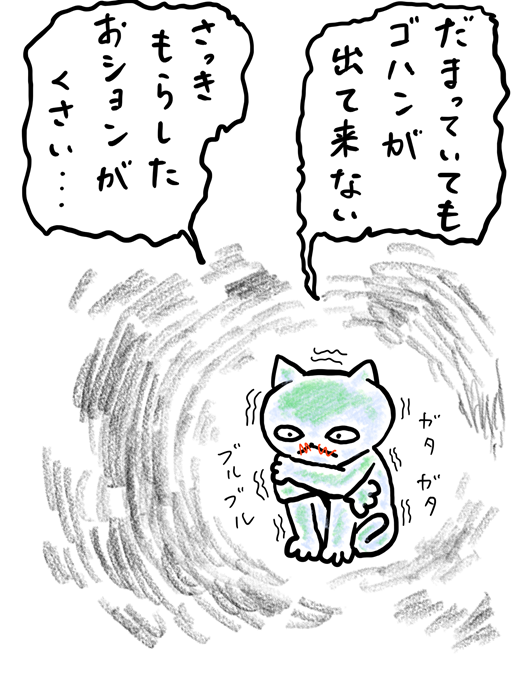 だまっていても
ゴハンが
出て来ない
さっき
もらした
おションが
くさい...
ガタ
ガタ
ブル
ブル